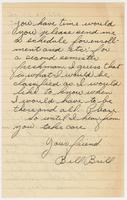 you have time would
you please send me
a schedule for enroll-
ment and etc. for
a second semester
freshman. I guess that
is what I would be
classified as. I would
like to know when
I would have to be
there and all. Please
so until I hear from
you take care
Your friend
Bill Brill